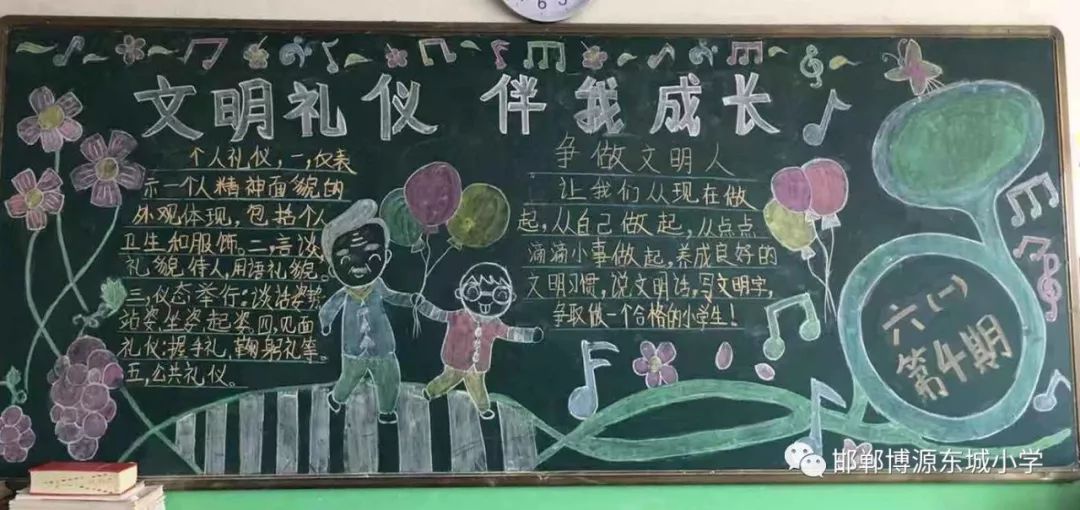 文明礼仪 伴我成长
个人礼仪,一,仪表
示一个人精神面貌的
外观体现,包括个人
卫生和服饰。二,言谈
礼貌待人,用语礼貌。
三,仪态举行:谈话姿势
站姿,坐姿,起姿,四,见面
礼仪:握手礼,鞠躬礼等。
五,公共礼仪。
争做文明人
让我们从现在做
起,从自己做起,从点点
滴滴小事做起,养成良好的
文明习惯,说文明话,写文明字,
争取做一个合格的小学生!
六(一)
第4期
邯郸博源东城小学